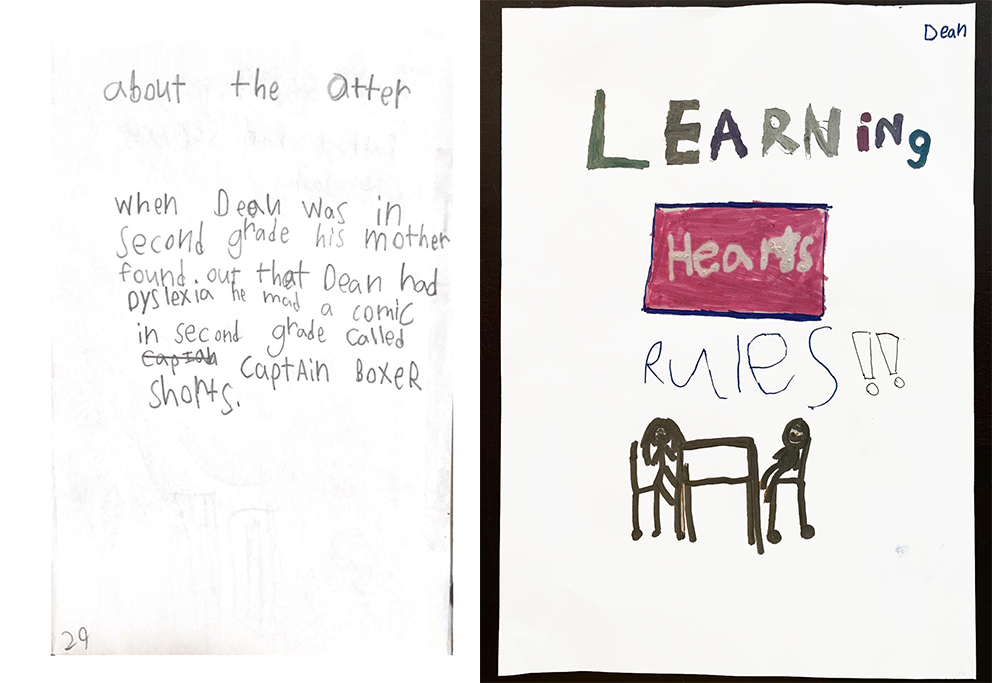 about the atter
when Dean was in
second grade his mother
found. out that Dean had
Dyslexia he mad a comic
in second grade called
CaptAin BoxeR
shorts.
29
Dean
LEARNing
Hearts
RULES!!